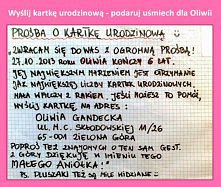 Wyślij kartkę urodzinową - podaruj uśmiech dla Oliwii
PROŚBA O KARTKĘ URODZINOWĄ
ZWRACAM SIĘ DO WAS Z OGROMNĄ PROŚBĄ!
27.10.2013 ROKU OLIWIA KOŃCZY 6 LAT.
JEJ NAJWIĘKSZYM MARZENIEM JEST OTRZYMANIE
JAK NAJWIĘKSZEJ ILOŚCI KARTEK URODZINOWYCH.
MAŁA WALCZY Z RAKIEM. JEŚLI MOŻESZ TO POMÓŻ,
WYŚLIJ KARTKĘ NA ADRES:
OLIWIA GANDECKA
UL. M.C. SKŁODOWSKIEJ 11/26
65-001 ZIELONA GÓRA
POPROŚ TEŻ ZNAJOMYCH O TEN SAM GEST.
Z GÓRY DZIĘKUJĘ W IMIENIU TEGO
MAŁEGO ANIOŁKA!
PS. PLUSZAKI TEŻ SĄ MILE WIDZIANE